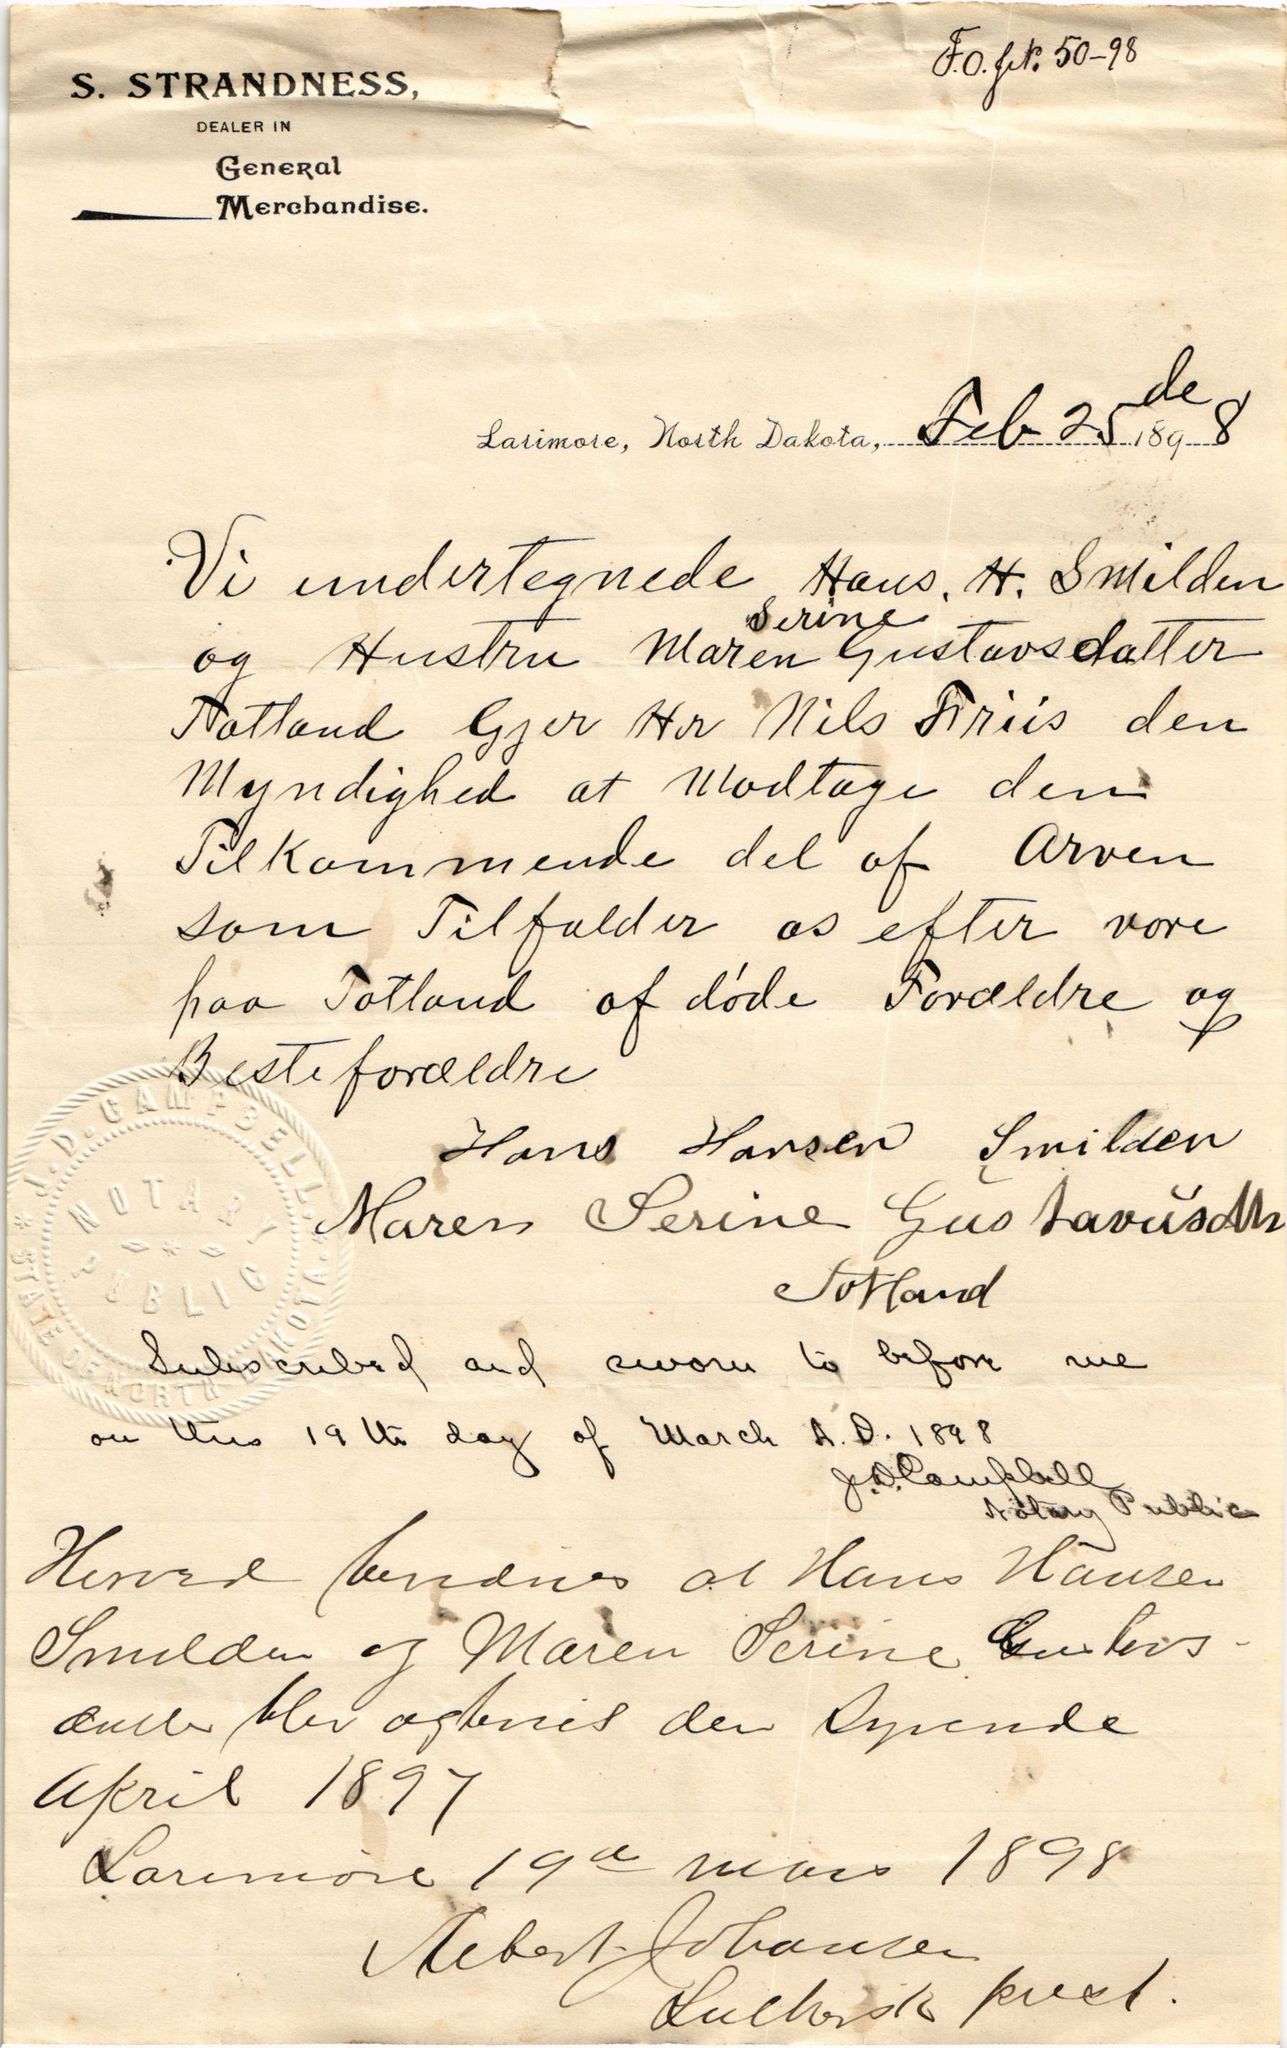 F.O. Jr. 50-98
S. STRANDNESS,
DEALER IN
General
Merchandise.
Larimore, North Dakota, Feb 25de 1898
Vi undertegnede Hans. H. Smilden
og Hustru Maren Serine Gustavsdatter
Totland Gjer Hr Nils Friis den
Myndighed at Modtage den
Tilkommende del af Arven
som Tilfalder os efter vore
paa Totland af døde Forældre og
Besteforældre
Hans Hansen Smilden
Maren Serine Gustavusdtr
Totland
J. D. CAMPBELL
NOTARY PUBLIC
STATE OF NORTH DAKOTA
Subscribed and sworn to before me
on this 19th day of March A.D. 1898
J.D. Campbell
Notary Public
Herved bevidnes at Hans Hansen
Smilden og Maren Serine Gustavs-
datter blev ægteviet den syvende
April 1897
Larimore 19de mars 1898
Johansen
Luthersk prest.